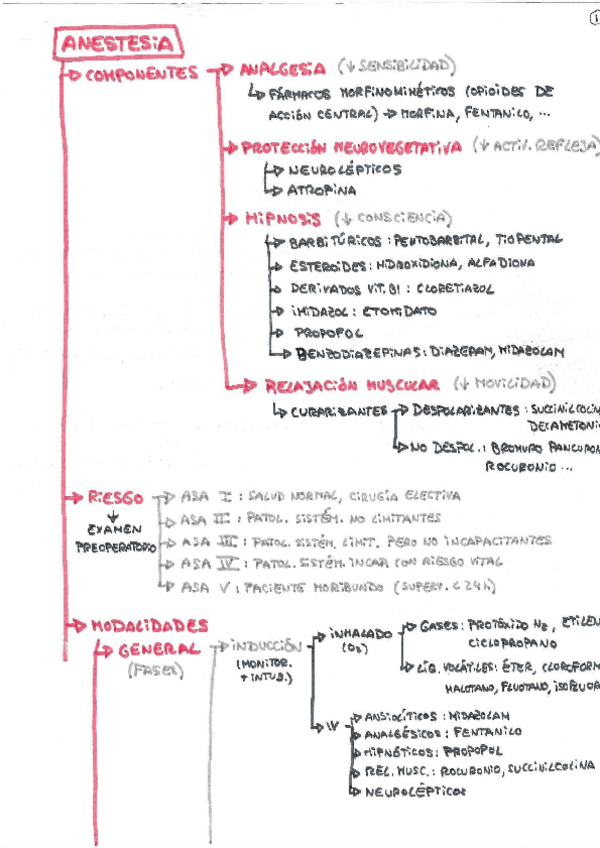 1
ANESTESIA
COMPONENTES
ANALGESIA (↓ SENSIBILIDAD)
FÁRMACOS MORFINOMIMÉTICOS (OPIOIDES DE
ACCIÓN CENTRAL) → MORFINA, FENTANILO, ...
PROTECCIÓN NEUROVEGETATIVA (↓ ACTIV. REFLEJA)
NEUROLÉPTICOS
ATROPINA
HIPNOSIS (↓ CONSCIENCIA)
BARBITÚRICOS: PENTOBARBITAL, TIOPENTAL
ESTEROIDES: HIDROXIDIONA, ALFADIONA
DERIVADOS VIT. B1: CLORETIAZOL
IMIDAZOL: ETOMIDATO
PROPOFOL
BENZODIAZEPINAS: DIAZEPAN, MIDAZOLAN
RELAJACIÓN MUSCULAR (↓ MOVILIDAD)
CURARIZANTES → DESPOLARIZANTES:
NO DESPOL.: BROMURO
ROCURONIO ...
RIESGO
EXAMEN
PREOPERATORIO
ASA I: SALUD NORMAL, CIRUGÍA ELECTIVA
ASA II: PATOL. SISTÉM. NO LIMITANTES
ASA III: PATOL. SISTÉM. LIMIT. PERO NO INCAPACITANTES
ASA IV: PATOL. SISTÉM. INCAP. CON RIESGO VITAL
ASA V: PACIENTE MORIBUNDO (SUPERV. < 24h)
MODALIDADES
GENERAL
(FASES)
INDUCCIÓN
(MONITOR.
+ INTUB.)
INHALADO
(O2)
GASES: PROTÓXIDO N2,
CICLOPROPANO
LÍQ. VOLÁTILES: ÉTER,
HALOTANO, FLUOTANO,
IV
ANSIOLÍTICOS: MIDAZOLAN
ANALGÉSICOS: FENTANILO
HIPNÓTICOS: PROPOFOL
REL. MUSC.: ROCURONIO, SUCCINILCOLINA
NEUROLÉPTICOS